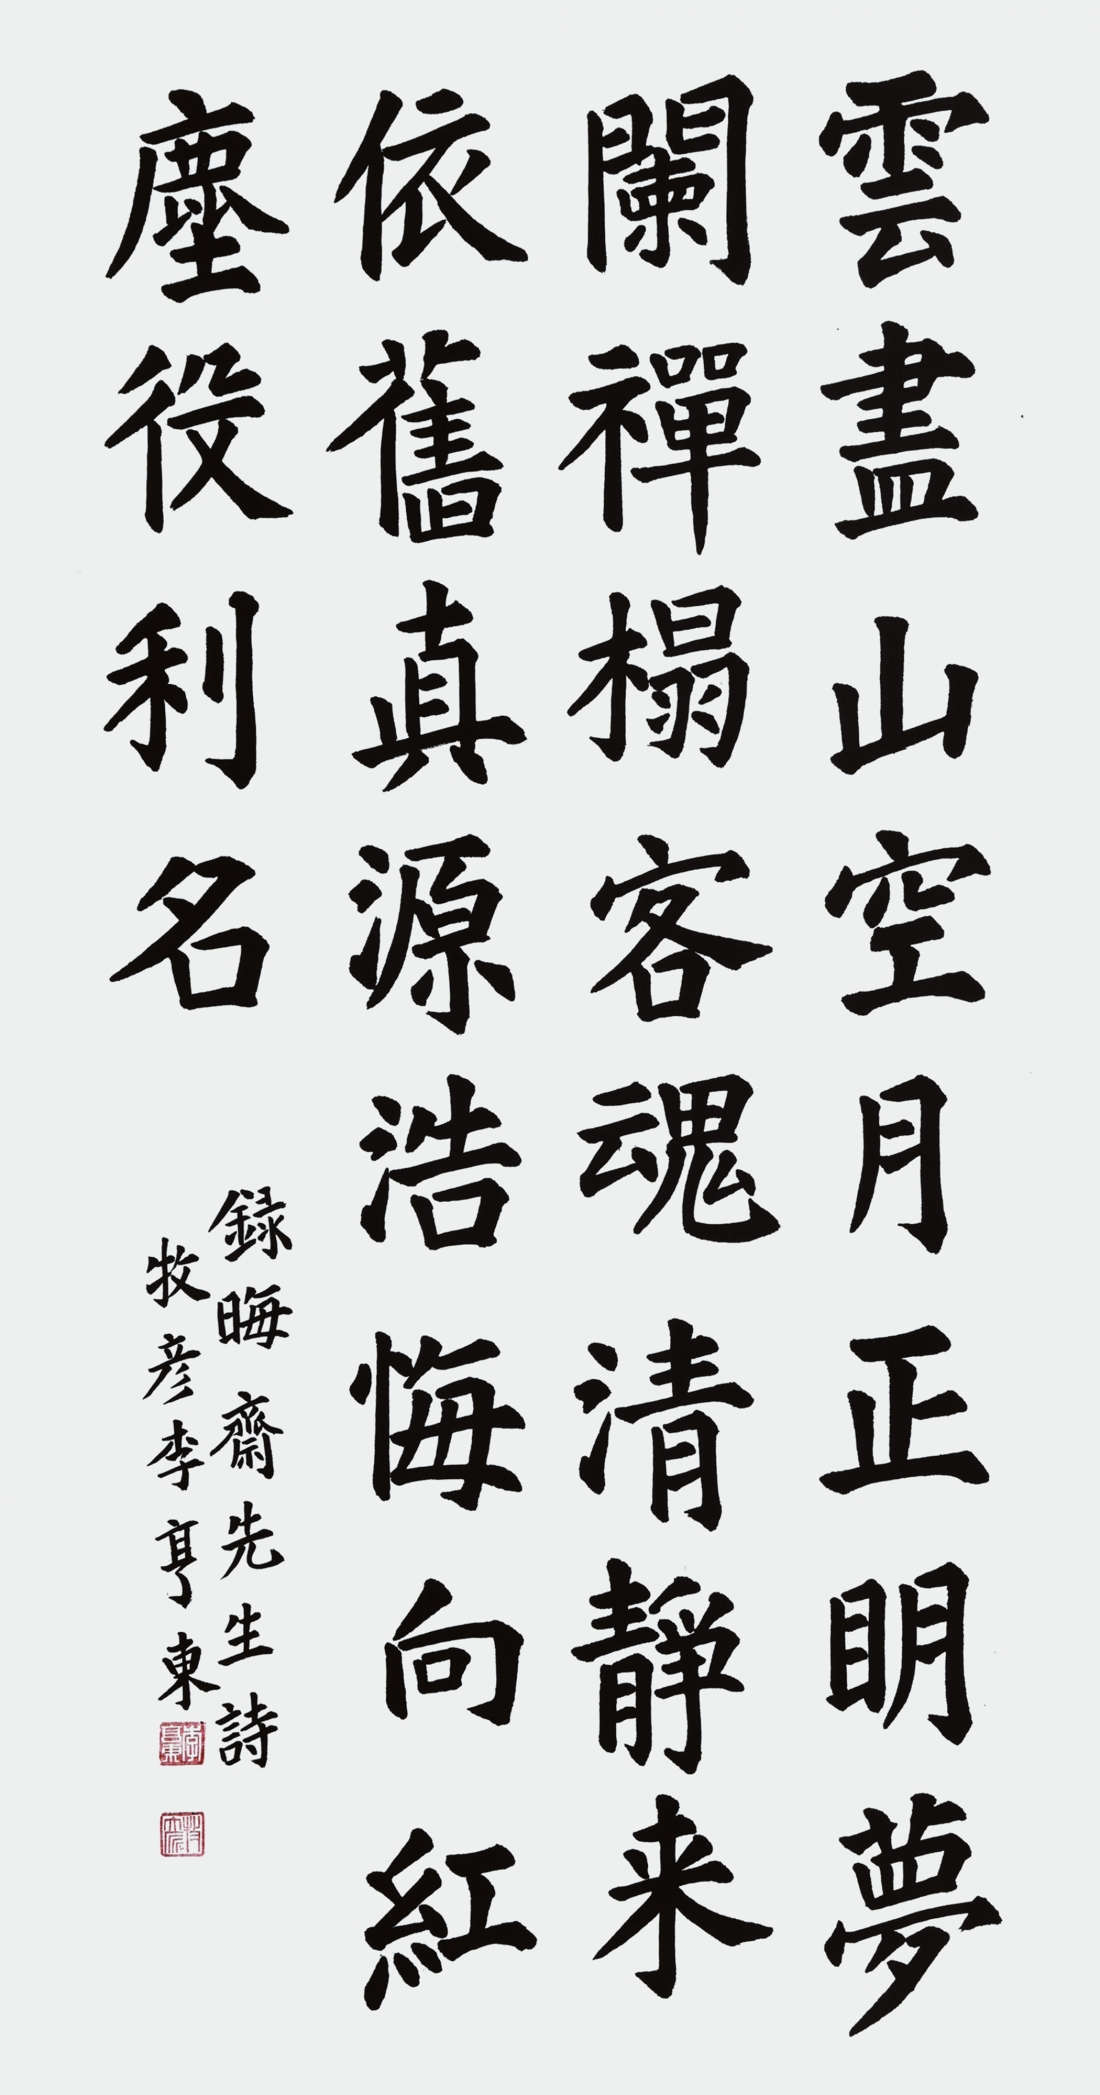 雲盡山空月正明夢
闌禪榻客魂清靜来
依舊真源浩悔向紅
塵役利名
録晦齋先生詩
牧彦李亨東